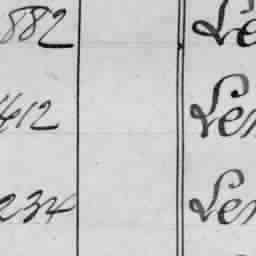 882 Le
412 Len
234 Len